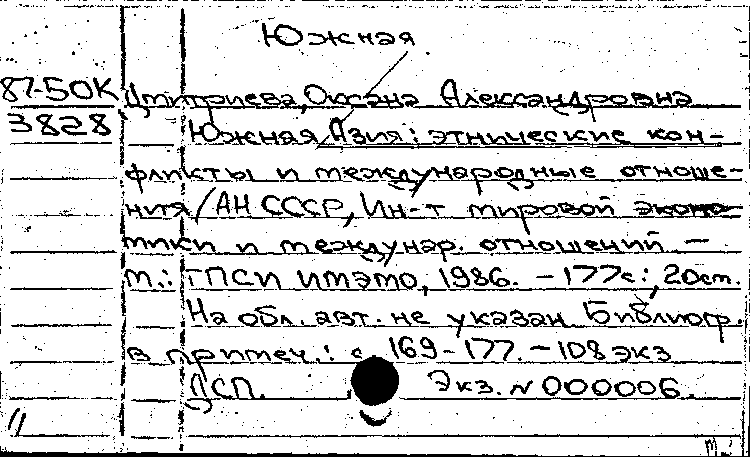 Южная
87-50К Дмитриева, Оксана Александровна
3828 Южная Азия: этнические кон-
фликты и международные отноше-
ния / АН СССР, Ин-т мировой эконо-
мики и междунар. отношений -
М.: ГПСИ ИМЭМО, 1986. - 177с.; 20см.
На обл. авт. не указан. Библиогр.
в примеч.: с 169-177. - 108 экз
ДСП. Экз. N 000006.